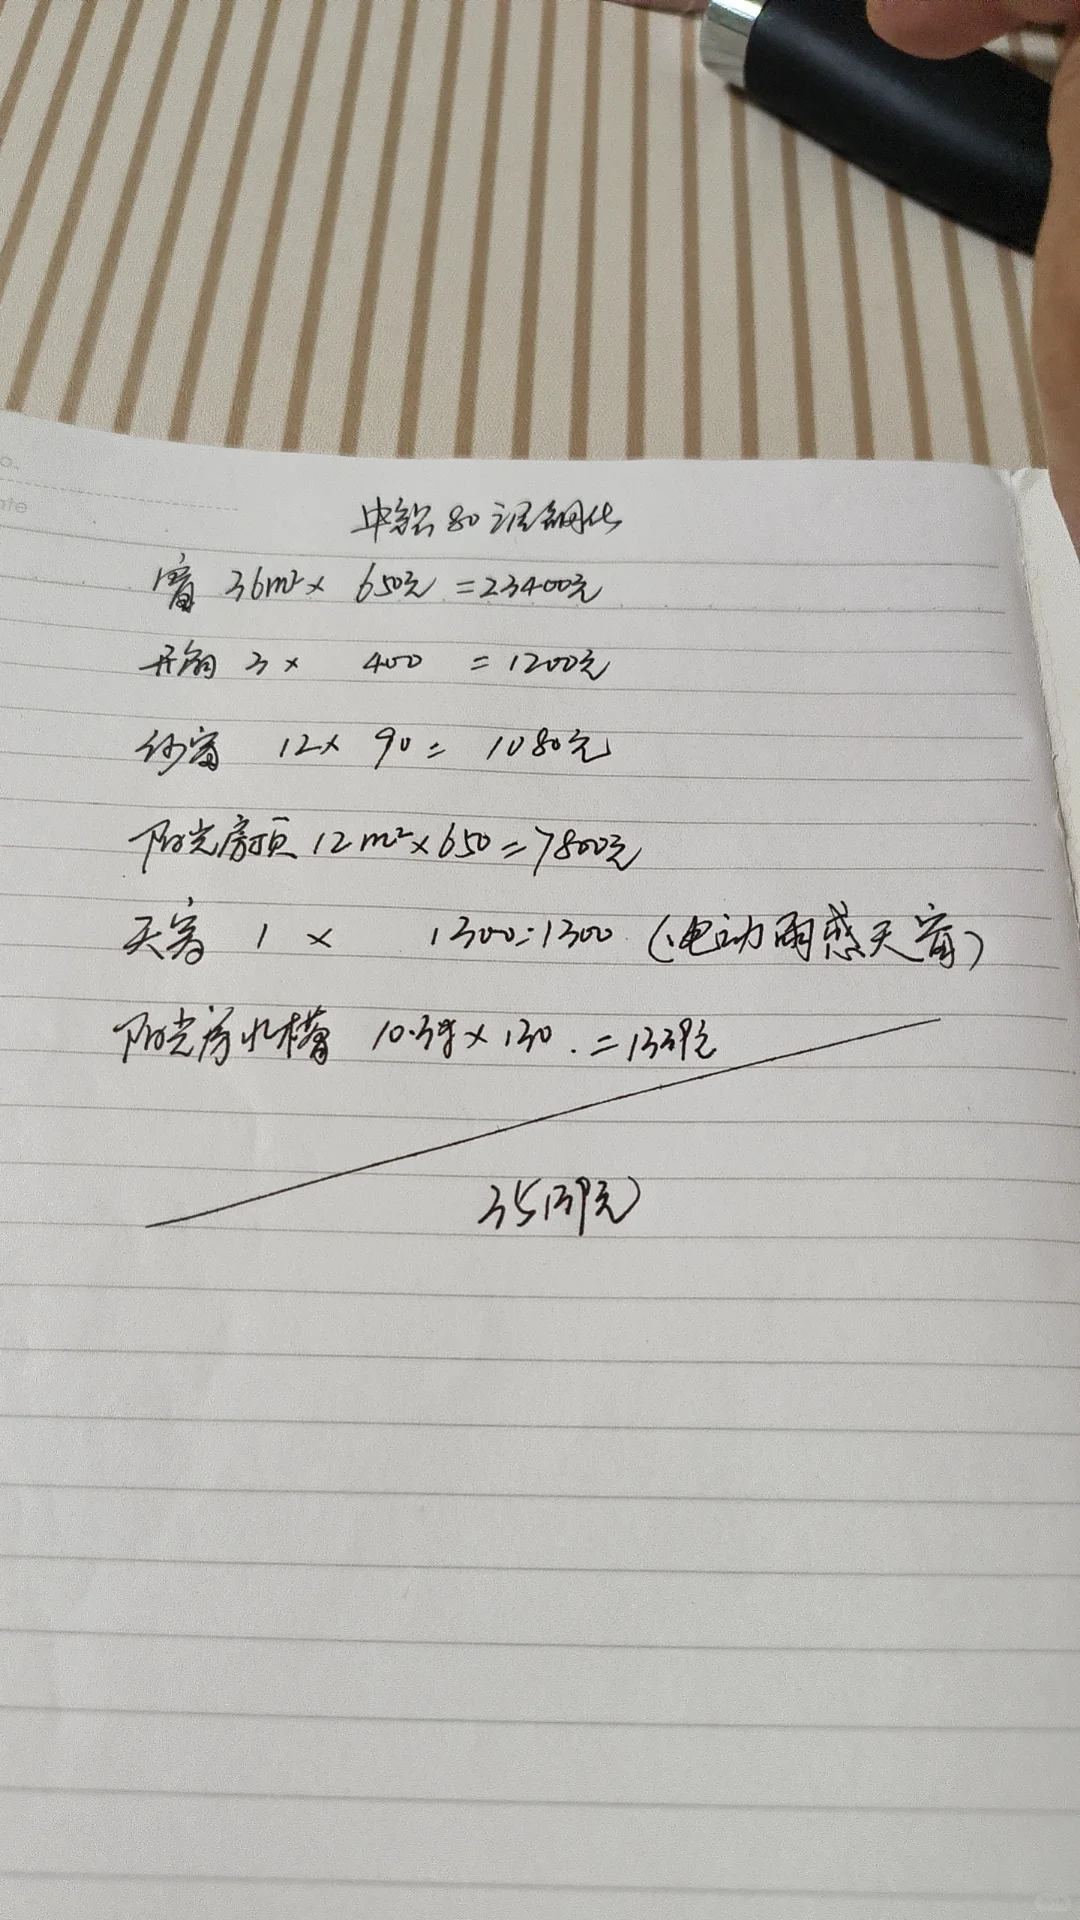 o.
ate
中铝80 钢化
窗 36m²× 650元 =23400元
开扇 3× 400 =1200元
纱窗 12× 90= 1080元
阳光房顶 12m²×650=7800元
天窗 1 × 1300=1300 (电动雨感天窗)
阳光房水槽 10.3×130.=1339元
35139元